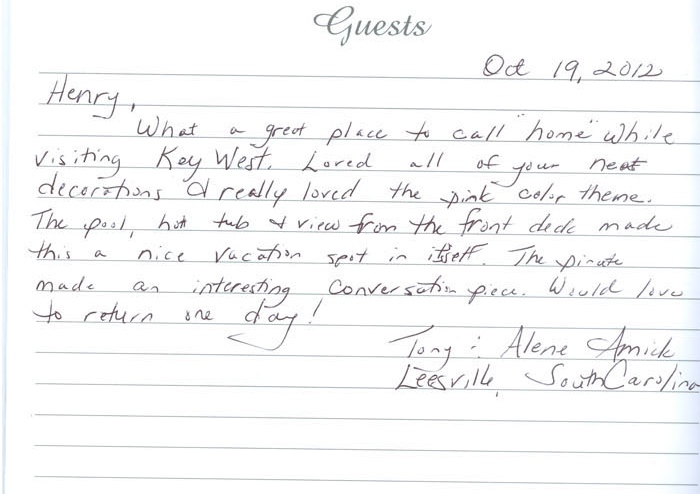 Guests
Oct 19, 2012
Henry,
What a great place to call "home" while
visiting Key West. Loved all of your neat
decorations & really loved the pink color theme.
The pool, hot tub & view from the front deck made
this a nice vacation spot in itself. The pirate
made an interesting conversation piece. Would love
to return one day!
Tony & Alene Amick
Leesville, South Carolina